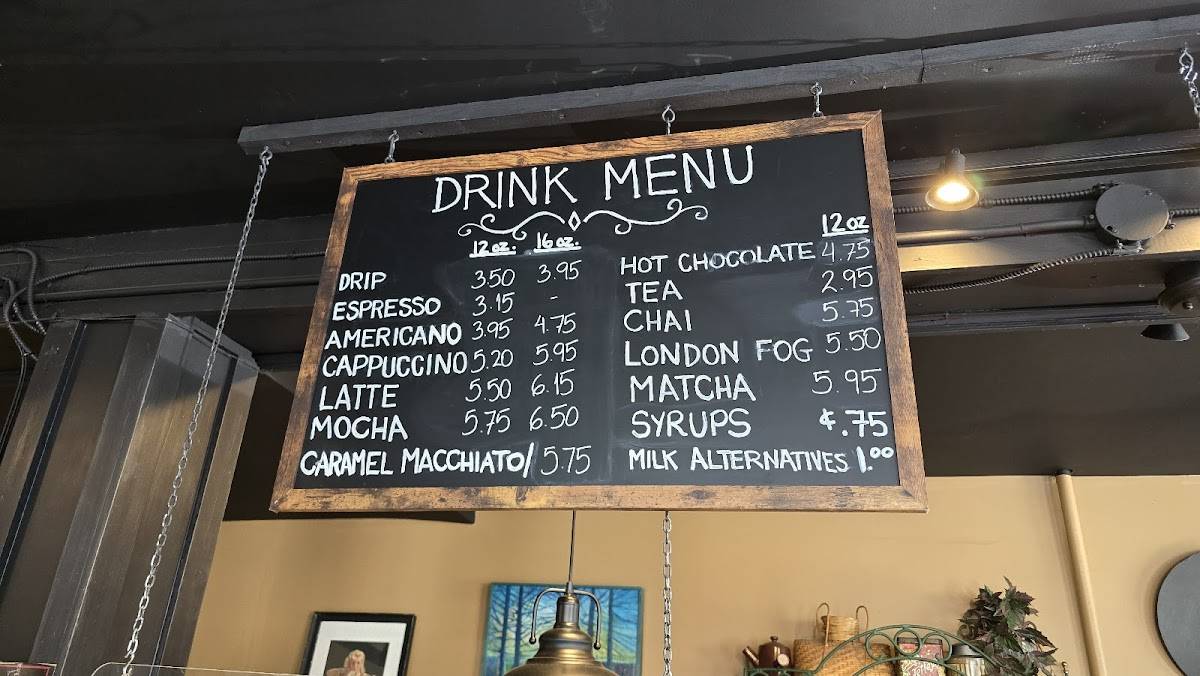 DRINK MENU
12 oz. 16 oz.
DRIP 3.50 3.95
ESPRESSO 3.15 -
AMERICANO 3.95 4.75
CAPPUCCINO 5.20 5.95
LATTE 5.50 6.15
MOCHA 5.75 6.50
CARAMEL MACCHIATO/ 5.75
12 oz
HOT CHOCOLATE 4.75
TEA 2.95
CHAI 5.75
LONDON FOG 5.50
MATCHA 5.95
SYRUPS ¢.75
MILK ALTERNATIVES 1.00